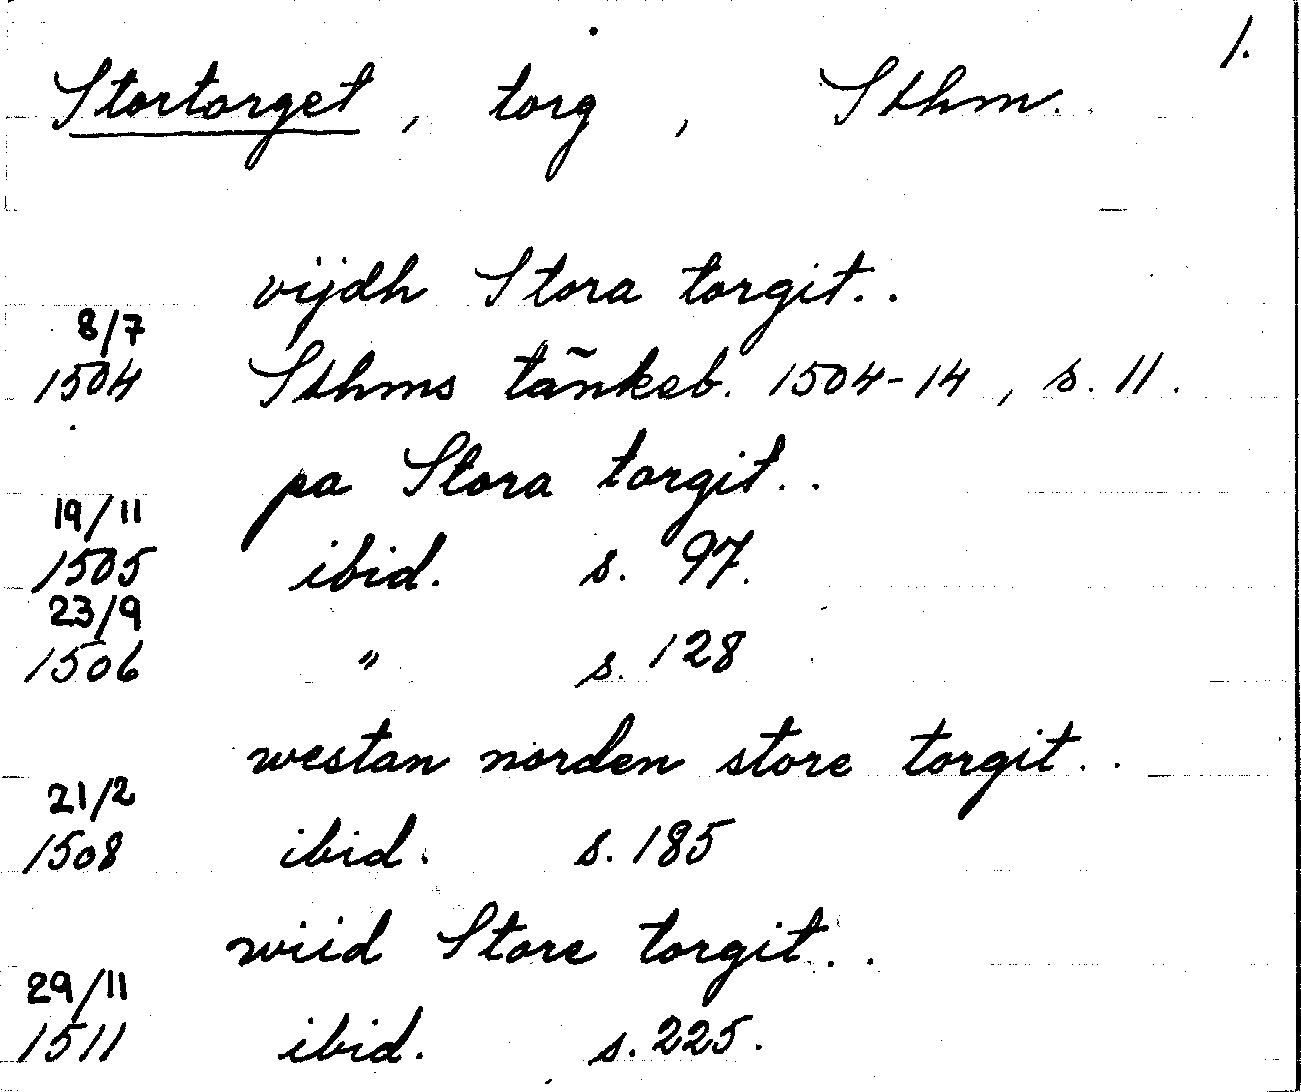 1.
Stortorget, torg, Sthm.
vijdh Stora torgit..
8/7
1504 Sthms tänkeb. 1504-14, s. 11.
pa Stora torgit..
19/11
1505 ibid. s. 97.
23/9
1506 " s. 128
westan norden store torgit..
21/2
1508 ibid. s. 185
wiid Store torgit..
29/11
1511 ibid. s. 225.